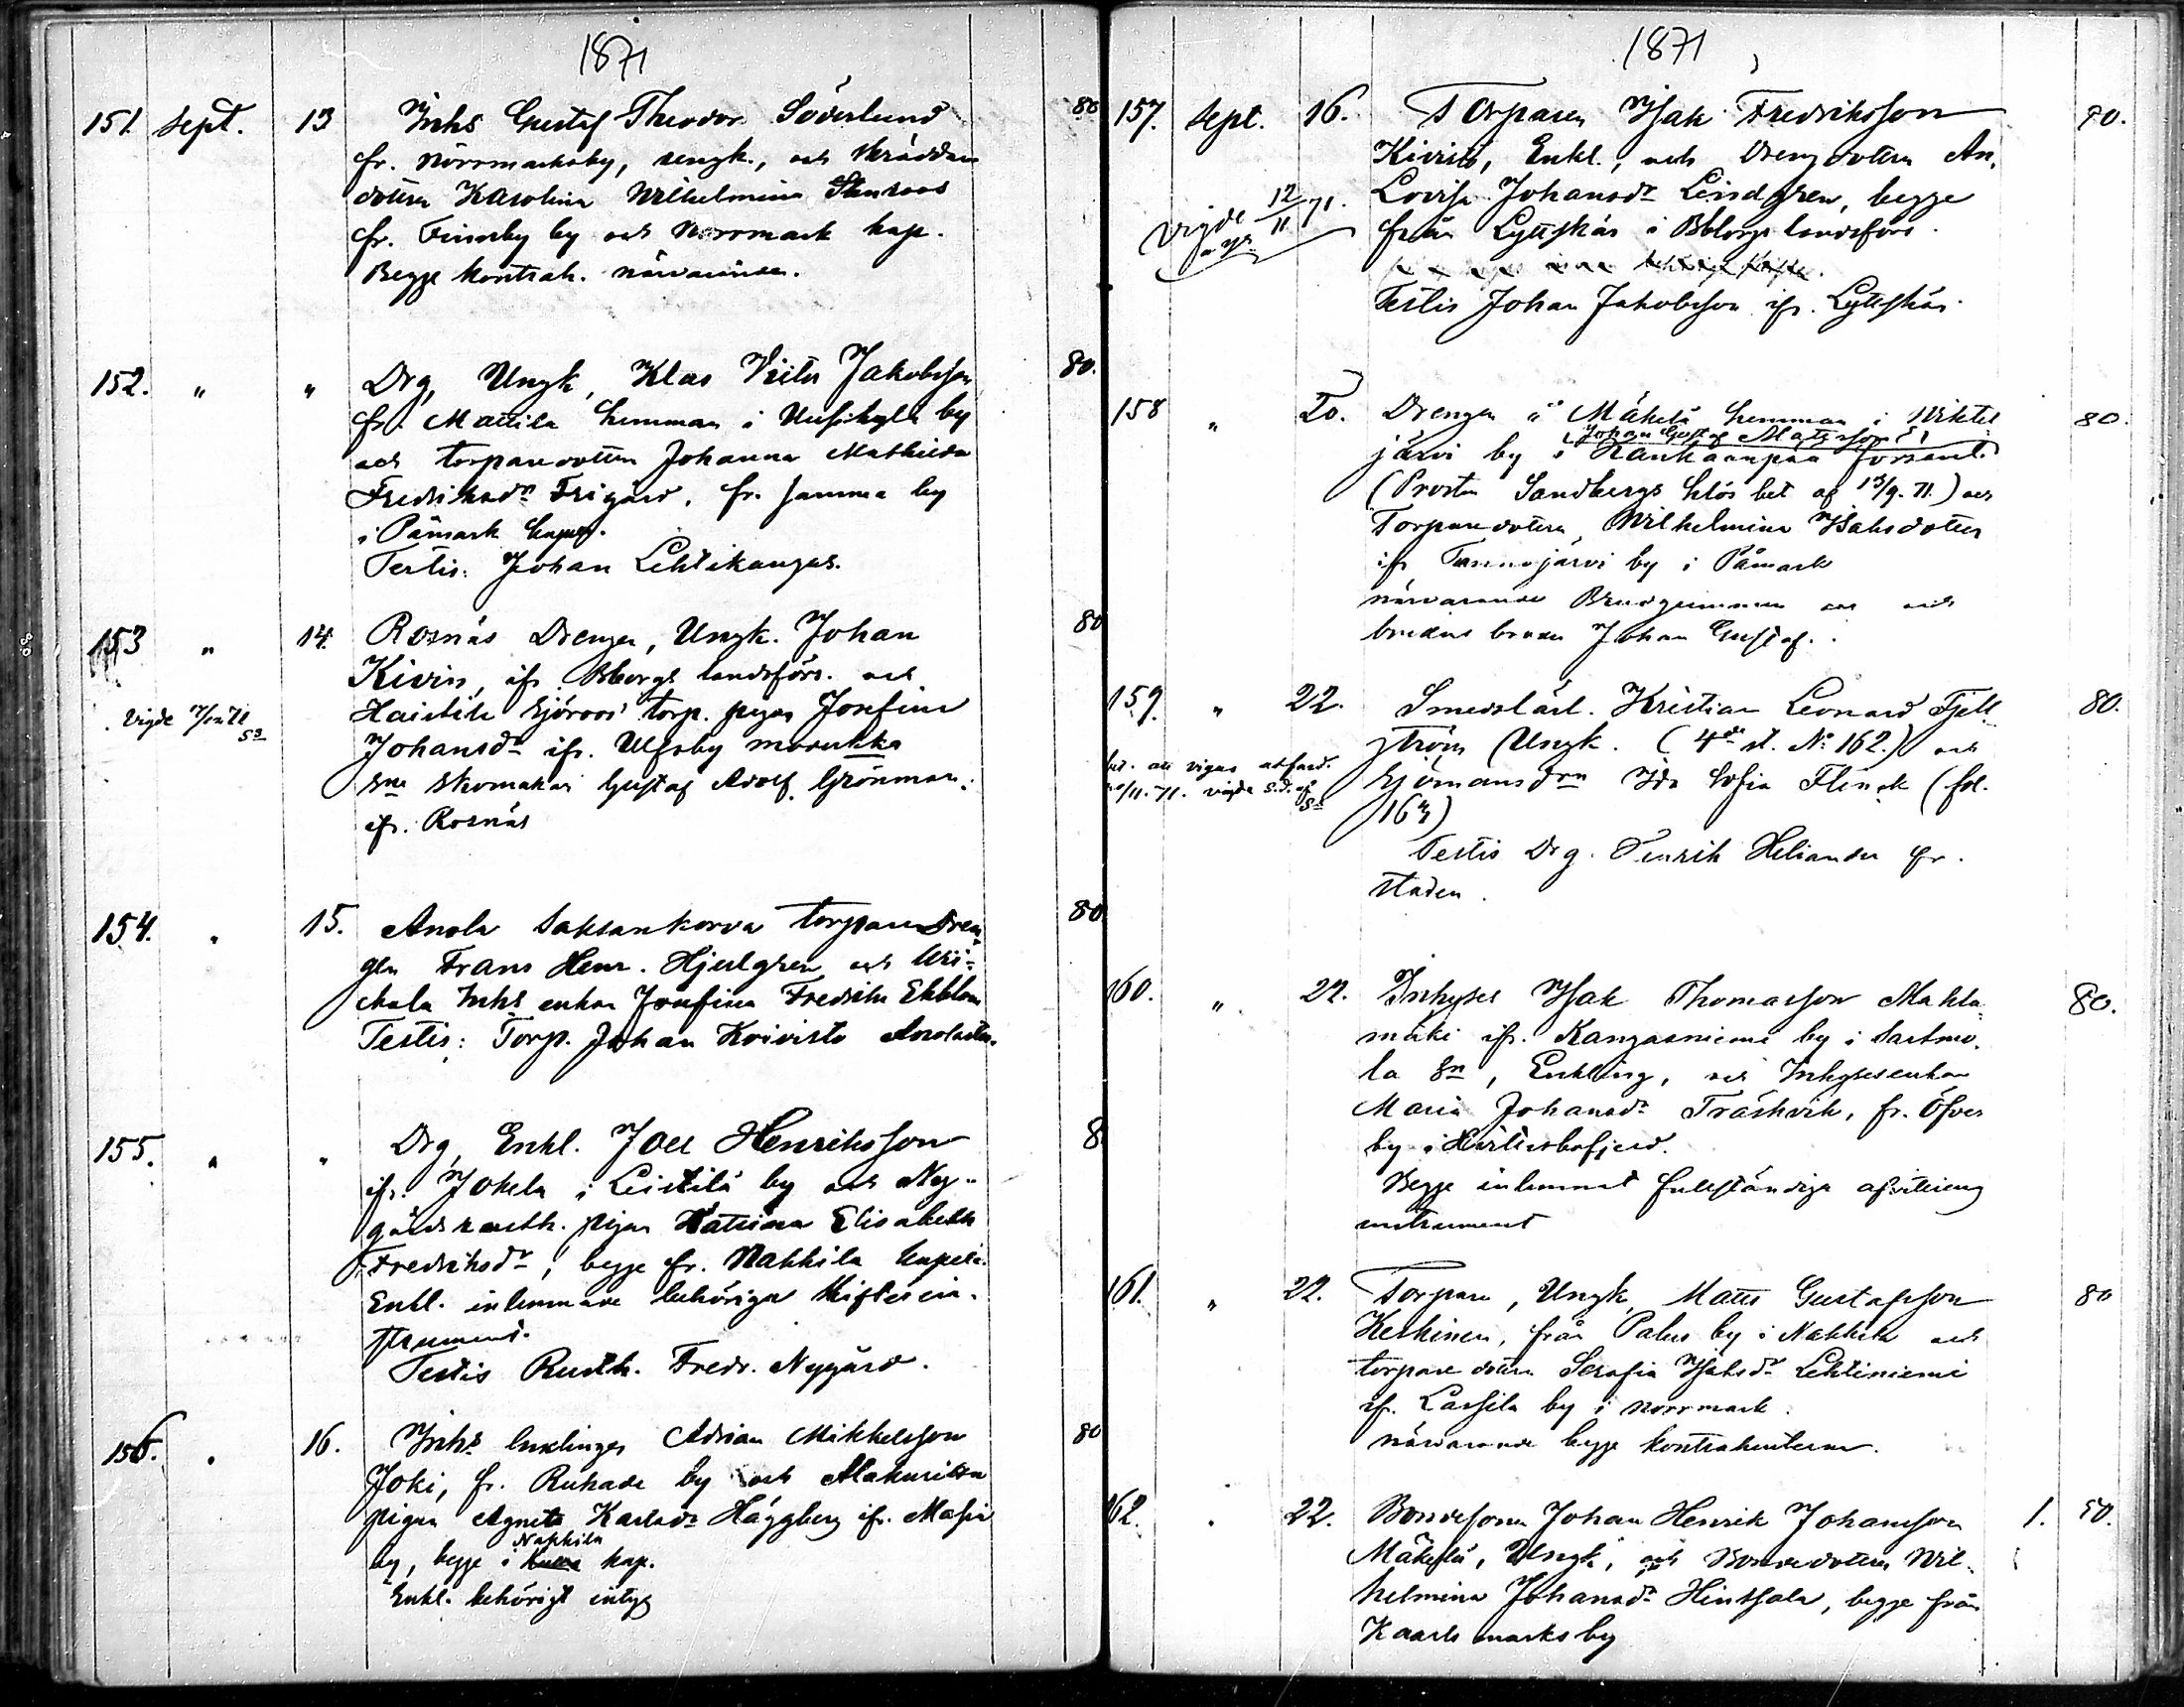 1871
151. Sept. 13 Inhs Gustaf Theodor Söderlund 80
fr. Norrmarksby, ungk., och skräddare
dottern Karolina Wilhelmina Stenroos
fr. Finnby by och Norrmark kap.
Begge kontrah. närvarande.
152. " " Drg, Ungk, Klas Viktor Jakobsson 80.
fr. Mattila hemman i Uusikylä by
och torparedottern Johanna Mathilda
Fredriksdr Frigård, fr. samma by
i Påmark kapell.
Testis: Johan Lehtikangas.
153 " 14. Rosnäs Drengen, Ungk. Johan 80
Kivin, ifr. Bborgs landsförs. och
Vigde
Haistila Sjöroos torp. pigan Josefina
Johansdr ifr. Ulfsby
skomakar Gustaf Adolf Grönman.
ifr. Rosnäs
154. " 15. Anola Saksankorva torpare Dren 80
gen Frans Henr. Hjulgren och
Inhs enkan Josefina Fredrika Ekblom
Testis: Torp. Johan Koivisto
155. " " Drg, Enkl. Joel Henriksson 8
ifr. Jokela i Leistilä by och Ny-
gårds rusth. pigan Katrina Elisabeth
Fredriksdr, begge fr. Nakkila kapell.
Enkl. inlemnade behöriga skiftesin-
strument.
Testis Rusth. Fredr. Nygård.
156. " 16. Inhs enklingen Adrian Mikkelsson 80
Joki, fr. Ruhade by och
pigan Agneta Karlsdr Häggberg ifr. Masia
Nakkila
by, begge i kap.
Enkl. behörigt intyg
1871
157. Sept. 16. Torparen Isak Fredriksson 80.
Kivistö, Enkl., och Drengdottern An.
Vigde 12/11 71.
Lovisa Johansdr Lindgren, begge
från Lyttskär i Bblorgs landsförs.
Testis Johan Jakobsson ifr. Lyttskär.
158 " Do. Drengen å Mäkelä hemman i Wihtel 80.
Johan Gustaf Matsson
järvi by i Kankaanpää församl.
(Prosten Sandbergs hlös bet af 13/9. 71.) och
Torparedottern Wilhelmina Isaksdotter
ifr Tammojärvi by i Påmark
närvarande Brudgummen och
brudens broder Johan Gustaf.
159. " 22. Smedslärl. Kristian Leonard Fjell 80.
ström Ungk. (4de st. No 162.) och
vigde s.d. af
Sjömansdrn Ida Sofia Flinck (fol.
Testis Drg. Henrik Heliander fr.
staden.
160. " 22. Inhyses Isak Thomasson Mahla 80.
mäki ifr. Kangasniemi by i Sastmo.
la Sn, Enkling, och Inhysesenkan
Maria Johansdr Träskvik, fr. Öfver
by i
Begge inlemnat fullständiga afvittrings
instrument
161. " 22. Torpare, Ungk, Matts Gustafsson 80
Keskinen, från Palus by i Nakkila och
torparedottern Serafia Isaksdr Lehtiniemi
ifr. Lassila by i Norrmark.
närvarande begge kontrahenterna.
162. " 22. Bondesonen Johan Henrik Johansson 1. 50.
Mäkelä, Ungk, och Bondedottern Wil-
helmina Johansdr Hintsala, begge från
Kaarlsmarks by